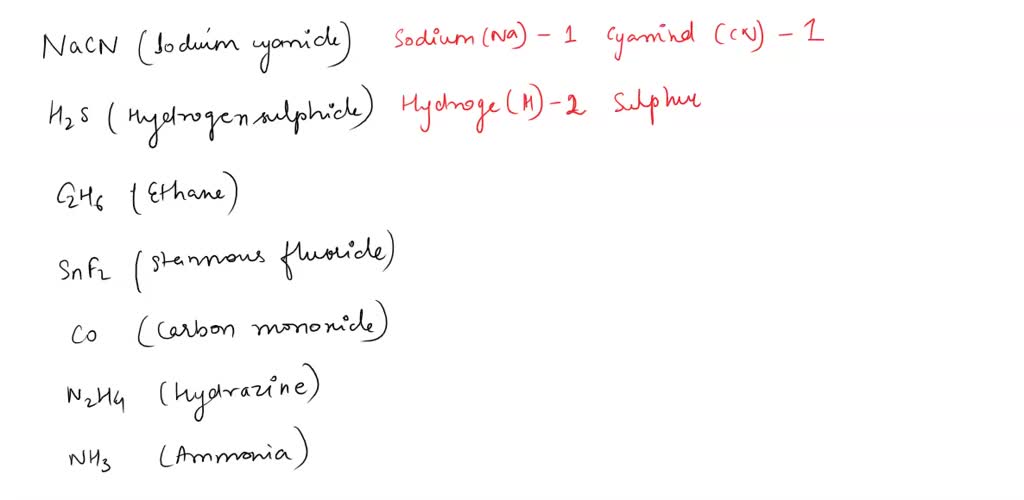 NaCN (Soduim cyanide) Sodium (Na) - 1 Cyamind (CN) - 1
H2S (Hydrogen sulphide) Hydroge (H) - 2 Sulphur
C2H6 (Ethane)
SnF2 (stannous fluoride)
CO (Carbon monoxide)
N2H4 (Hydrazine)
NH3 (Ammonia)